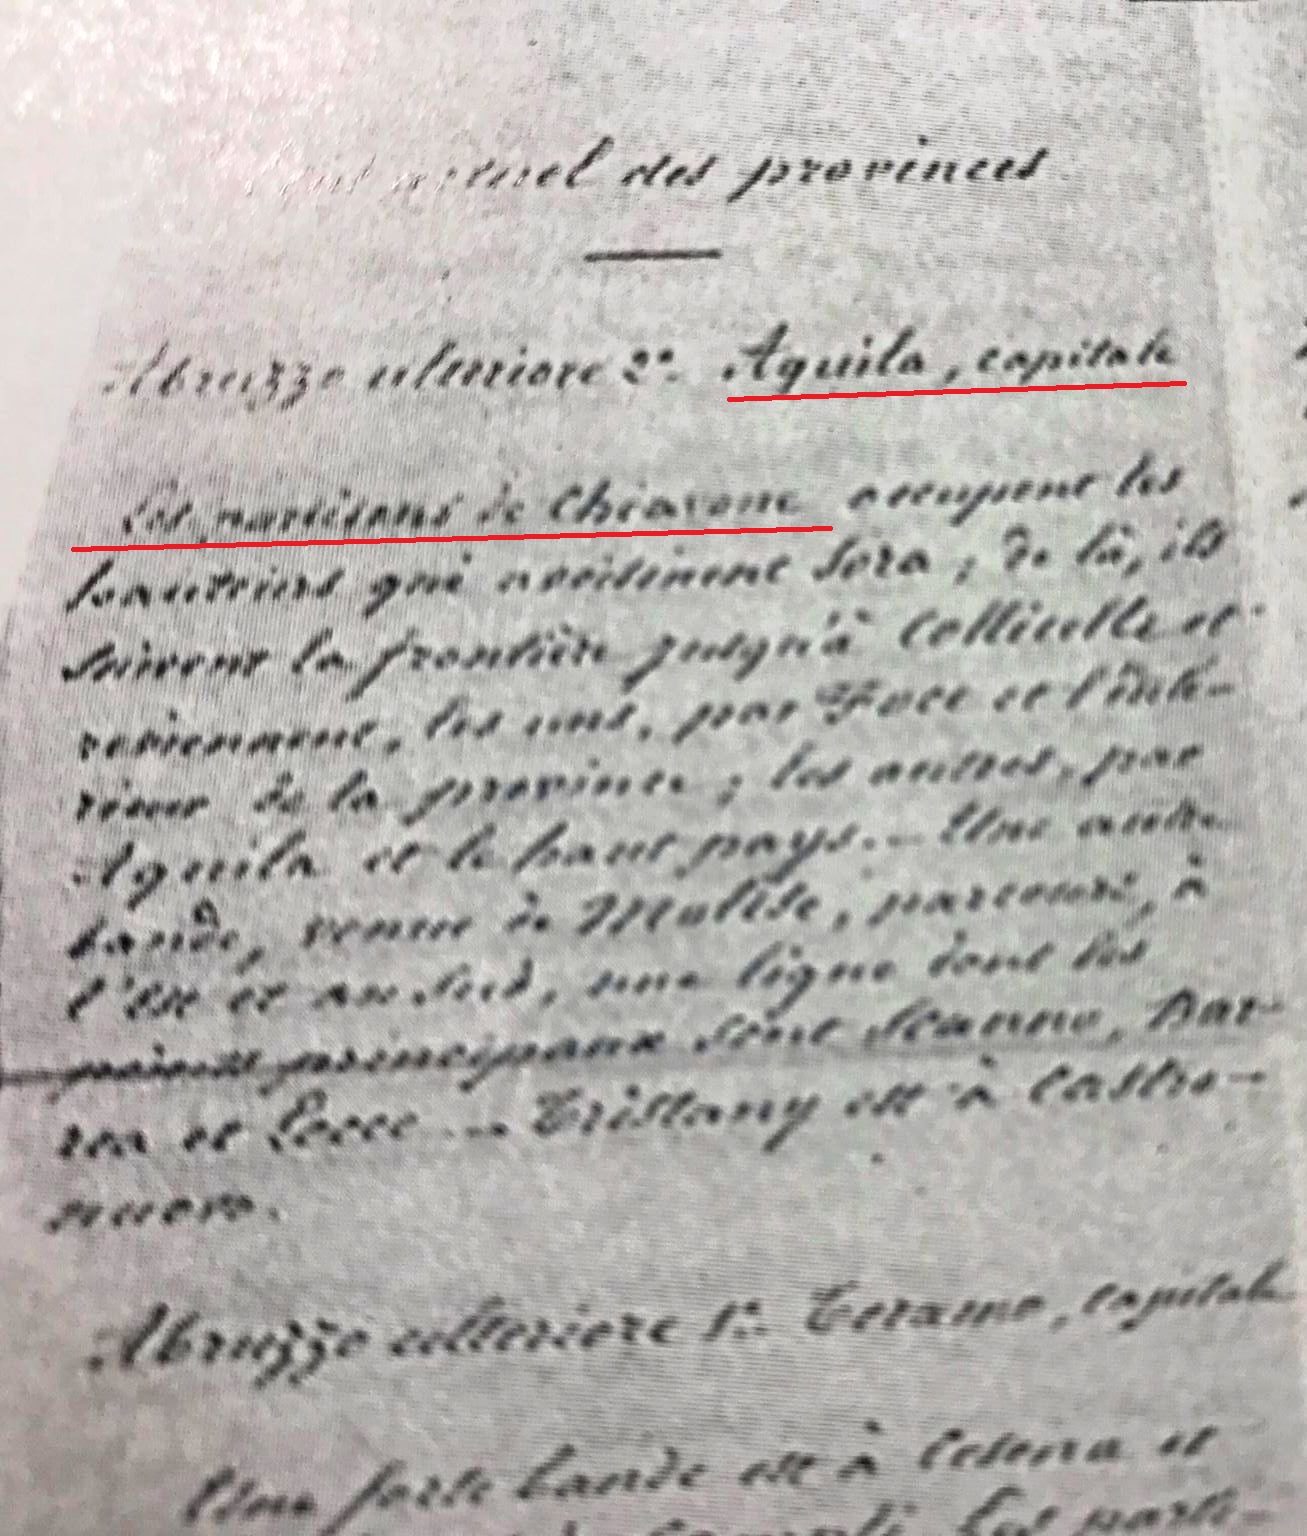 actuel des provinces
Abruzzo ulteriore 2ª. Aquila, capitale
Les partisans de Chiavone occupent les
hauteurs qui avoisinent Sora ; de là, ils
suivent la frontière jusqu'à Collicelle et
reviennent, les uns, par Foce et l'inté-
rieur de la province ; les autres, par
Aquila et le haut pays. — Une autre
bande, venue de Molise, parcourt, à
l'Est et au Sud, une ligne dont les
points principaux sont Scanno, Bar-
rea et Lecce. — Tristany est à Castro-
nuovo.
Abruzzo ulteriore 1ª. Teramo, capitale
Une forte bande est à Cesena et
Les parti-